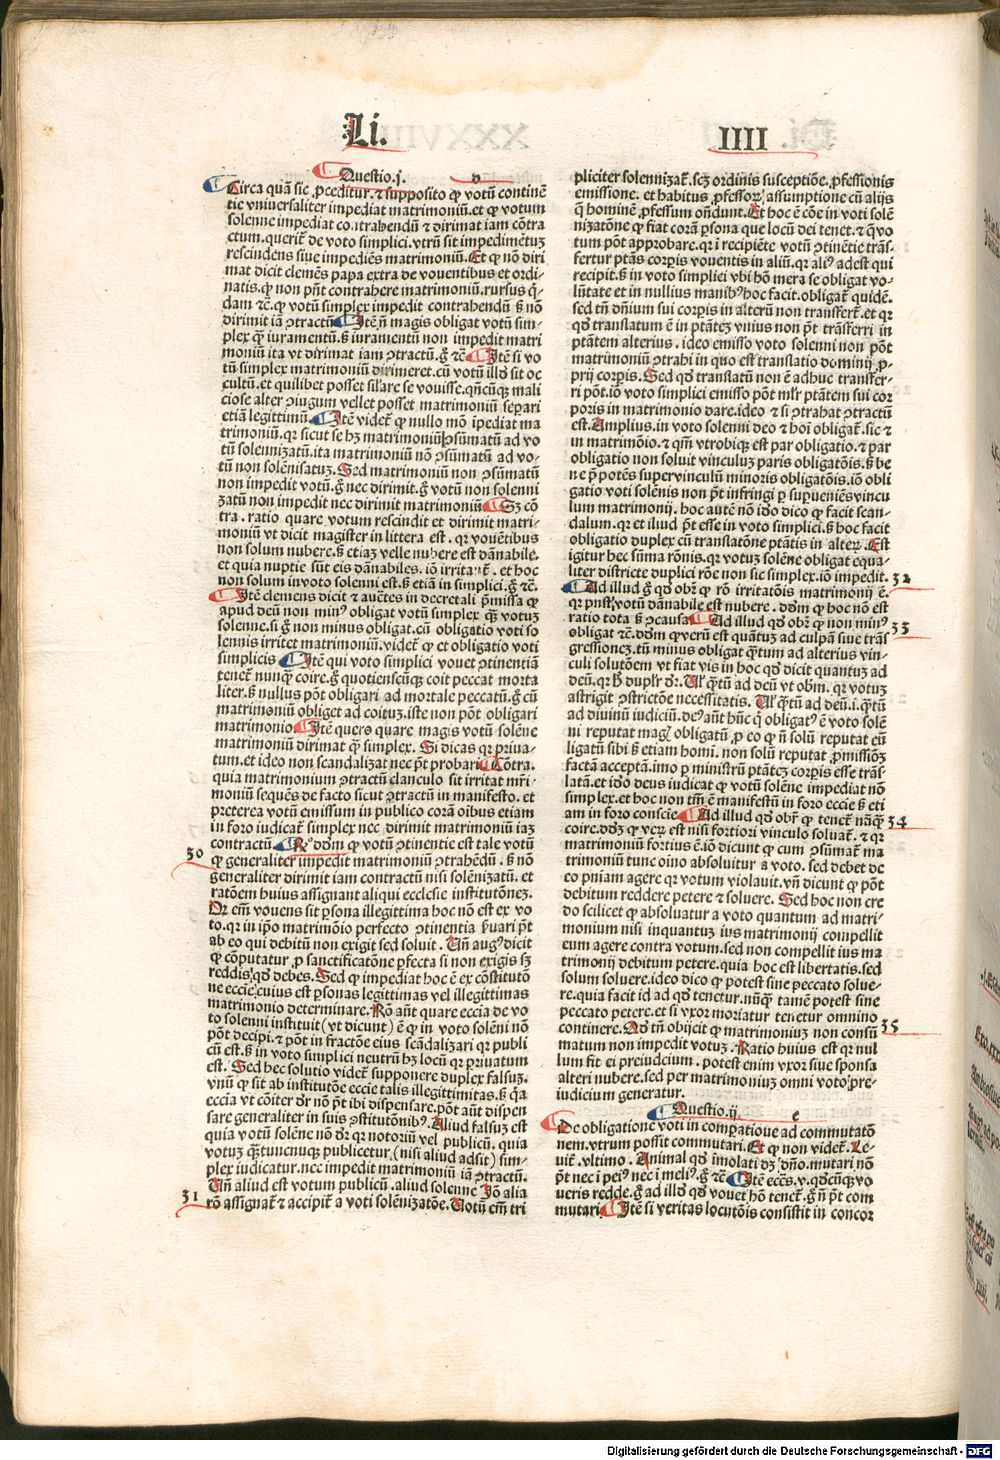 Li.
IIII
Questio.j. v
Circa quã sic ꝓceditur.⁊ supposito ꝙ votũ continẽ
tie vniuersaliter impediat matrimoniũ.et ꝙ votum
solenne impediat contrahendũ ⁊ dirimat iam cõtra
ctum.querit̃ de voto simplici.vtrũ sit impedimẽtuʒ
rescindens siue impediẽs matrimoniũ.Et ꝙ nõ diri
mat dicit clemẽs papa extra de vouentibus et ordi-
natis.ꝙ non pñt contrahere matrimoniũ.rursus q̃-
dam ⁊c̃.ꝙ votũ simplex impedit contrahendũ s̃ nõ
dirimit iã ꝯtractũ Itẽ ñ magis obligat votũ sim-
plex q̃ȝ iuramentũ.s̃ iuramentũ non impedit matri
moniũ ita vt dirimat iam ꝯtractũ.g̃ ⁊c̃ Itẽ si vo
tũ simplex matrimoniũ dirimeret.cũ votũ illð sit oc
cultũ.et quilibet posset sil̃are se vouisse.qñcũqȝ mali
ciose alter ꝯiugum vellet posset matrimoniũ separi
etiã legittimũ. Itẽ videt̃ ꝙ nullo mõ ĩpediat ma
trimoniũ.qꝛ sicut se hȝ matrimoniũ ꝯsũmatũ ad vo
tũ solennizatũ.ita matrimoniũ nõ ꝯsũmatũ ad vo-
tũ non solẽnisatuȝ.Sed matrimoniũ non ꝯsũmatũ
non impedit votũ.g̃ nec dirimit.g̃ votũ non solenni
zatũ non impedit nec dirimit matrimoniũ Sȝ cõ
tra.ratio quare votum rescindit et dirimit matri-
moniũ vt dicit magister in littera est.qꝛ vouẽtibus
non solum nubere.s̃ etiaȝ velle nubere est dãnabile.
et quia nuptie sũt eis dãnabiles.iõ irritant̃.et hoc
non solum in voto solenni est.s̃ etiã in simplici.g̃ ⁊c̃.
Itẽ clemens dicit ⁊ auctẽs in decretali p̃missa ꝙ
apud deũ non minꝰ obligat votũ simplex q̃ȝ votuȝ
solenne.si g̃ non minus obligat.cũ obligatio voti so
lennis irritet matrimoniũ.videt̃ ꝙ et obligatio voti
simplicis Itẽ qui voto simplici vouet ꝯtinentiã
tenet̃ nunqȝ coire.g̃ quotienscũqȝ coit peccat morta
liter.s̃ nullus põt obligari ad mortale peccatũ.g̃ cũ
matrimoniũ obliget ad coituȝ.iste non põt obligari
matrimonio Itẽ querõ quare magis votũ solẽne
matrimoniũ dirimat q̃ȝ simplex. Si dicas qꝛ priua-
tum.et ideo non scandalizat nec pt̃ probari Cõtra.
quia matrimonium ꝯtractũ clanculo sit irritat mr̃i-
moniũ sequẽs de facto sicut ꝯtractũ in manifesto.et
preterea votũ emissum in publico corã oĩbus etiam
in foro iudicat̃ simplex nec dirimit matrimoniũ iaȝ
contractũ R̃° dðm ꝙ votũ ꝯtinentie est tale votũ
30
ꝙ generaliter impedit matrimoniũ ꝯtrahẽdũ.s̃ nõ
generaliter dirimit iam contractũ nisi solẽnizatũ.et
ratõem huius assignant aliqui ecclesie institutõneȝ.
Qꝛ em̃ vouens sit ꝑsona illegittima hoc nõ est ex vo
to.qꝛ in ip̃o matrimõio perfecto ꝯtinentia ẽuari pt̃
ab eo qui debitũ non exigit sed soluit. Vñ augꝰ dicit
ꝙ cõputatur ꝓ sanctificatõne ꝑfecta si non exigis sȝ
reddis qð debes.Sed ꝙ impediat hoc ẽ ex cõstitutõ
ne ecclẽ.cuius est ꝑsonas legittimas vel illegittimas
matrimonio determinare.Rõ aũt quare eccia de vo
to solenni instituit(vt dicunt)ẽ ꝙ in voto solẽni nõ
põt decipi.⁊ põt in fractõe eius scãdalizari qꝛ publi
cũ est.s̃ in voto simplici neutrũ hȝ locũ qꝛ priuatum
est. Sed hec solutio videt̃ supponere duplex falsuȝ.
vnũ ꝙ sit ab institutõe eccie talis illegittimitas.s̃ q̃a
eccia vt cõiter dr̃ nõ pt̃ ibi dispensare.põt aũt dispen
sare generaliter in suis ꝯstitutõnibꝰ.Aliud falsuȝ est
quia votũ solẽne nõ dr̃ qꝛ notoriũ vel publicũ.quia
votuȝ q̃ȝtuncunqȝ publicetur(nisi aliud adsit)sim-
plex iudicatur.nec impedit matrimoniũ iã ꝯtractũ.
Vñ aliud est votum publicũ.aliud solenne Jõ alia
31
rõ assignat̃ ⁊ accipit̃ a voti solẽnizatõe.Votũ em̃ tri
pliciter solennizat̃.scȝ ordinis susceptiõe.ꝓfessionis
emissione.et habitus ꝓfessoꝝ assumptione cũ alijs
q̃ hominẽ ꝓfessum oñdunt.Et hoc ẽ cõe in voti solẽ
nizatõne ꝙ fiat corã ꝑsona que locũ dei tenet.⁊ q̃ vo
tum põt approbare.qꝛ ĩ recipiẽte votũ ꝯtinẽtie trãs-
fertur ptãs corꝑis vouentis in aliũ.qꝛ aliꝰ adest qui
recipit.s̃ in voto simplici vbi hõ mera se obligat vo-
lũtate et in nullius manibꝰ hoc facit.obligat̃ quidẽ.
sed tñ dñium sui corꝑis in alterũ non transfert̃.et qꝛ
qð translatum ẽ in ptãteȝ vnius non pt̃ trãsferri in
ptãtem alterius.ideo emisso voto solenni non põt
matrimonium ꝯtrahi in quo est translatio dominij ꝓ-
prij corꝑis.Sed qð translatũ non ẽ adhuc transfer-
ri põt.iõ voto simplici emisso põt ml̃r ptãtem sui cor
poris in matrimonio dare.ideo ⁊ si ꝯtrahat ꝯtractũ
est.Amplius.in voto solenni deo ⁊ hoĩ obligat̃.sic ⁊
in matrimõio.⁊ qm̃ vtrobiqȝ est par obligatio.⁊ par
obligatio non soluit vinculuȝ paris obligatõis.s̃ be
ne p̃ potẽs supervinculũ minoris obligatõis.iõ obli
gatio voti solẽnis non pt̃ infringi ꝑ supueniẽs vincu
lum matrimonij.hoc autẽ nõ iðo dico ꝙ facit scan-
dalum.qꝛ et illud pt̃ esse in voto simplici.s̃ hoc facit
obligatio duplex cũ translatõne ptãtis in alteꝝ.Est
igitur hec sũma rõnis.qꝛ votuȝ solẽne obligat equa-
liter districte duplici rõe non sic simplex.iõ impedit. 32
Ad illud g̃ qð obr̃ ꝙ rõ irritatõis matrimonij ẽ.
qꝛ pnsti votũ dãnabile est nubere.dðm ꝙ hoc nõ est
ratio tota s̃ ꝯcausa Ad illud qð obr̃ ꝙ non minꝰ 33
obligat ⁊c̃.dðm ꝙ verũ est quãtuȝ ad culpã siue trãs
gressioneȝ.tñ minus obligat q̃ȝtum ad alterius vin-
culi solutõem vt fiat vis in hoc qð dicit quantuȝ ad
deũ.qꝛ hᷤ duplr̃ dr̃.Vl̃ q̃ȝtũ ad deũ vt obm̃.qꝛ votuȝ
astrigit ꝯstrictõe necessitatis. Vl̃ q̃ȝtũ ad deũ.i.q̃ȝtũ
ad diuinũ iudiciũ.deꝰ aũt hũc q̃ obligatꝰ ẽ voto solẽ
ni reputat magꝭ obligatũ ꝓ eo ꝙ ñ solũ reputat eũ
ligatũ sibi s̃ etiam homi.non solũ reputat ꝓmissiõȝ
factã acceptã.imo ꝑ ministrũ ptãteȝ corꝑis esse trãs-
latã.et iðo deus iudicat ꝙ votũ solẽne impediat nõ
simplex.et hoc non tm̃ ẽ manifestũ in foro eccie s̃ eti
am in foro conscie Ad illud qð obr̃ ꝙ tenet̃ nũqȝ 34
coire.dðȝ ꝙ veꝝ est nisi fortiori vinculo soluat̃.⁊ qꝛ
matrimoniũ fortius ẽ.iõ dicunt ꝙ cum ꝯsũmat̃ ma
trimoniũ tunc oino absoluitur a voto.sed debet de
eo pniam agere qꝛ votum violauit.vñ dicunt ꝙ põt
debitum reddere petere ⁊ soluere. Sed hoc non cre
do scilicet ꝙ absoluatur a voto quantum ad matri-
monium nisi inquantuȝ ius matrimonij compellit
eum agere contra votum.sed non compellit ius ma
trimonij debitum petere.quia hoc est libertatis.sed
solum soluere.ideo dico ꝙ potest sine peccato solue-
re.quia facit id ad qð tenetur.nũqȝ tamẽ potest sine
peccato petere.et si vxor moriatur tenetur omnino
continere.Ad tñ obijcit ꝙ matrimoniuȝ non consũ 35
matum non impedit votuȝ. Ratio huius est qꝛ nul
lum fit ei preiudicium.potest enim vxor siue sponsa
alteri nubere.sed per matrimoniuȝ omni voto pre-
iudicium generatur.
Questio.ij. e
De obligatione voti in compatione ad commutatõ
nem.vtrum possit commutari.Et ꝙ non videt̃.Le-
uit̃.vltimo.Animal qð ĩmolati dȝ dño.mutari nõ
pt̃ nec ĩ peiꝰ nec ĩ meliꝰ.g̃ ⁊c̃ Itẽ eccs.v.qðcũqȝ vo
ueris redde.g̃ ad illð qð vouet hõ tenet̃.g̃ ñ pt̃ com
mutari Itẽ si veritas locutõis consistit in concor
Digitalisierung gefördert durch die Deutsche Forschungsgemeinschaft - DFG